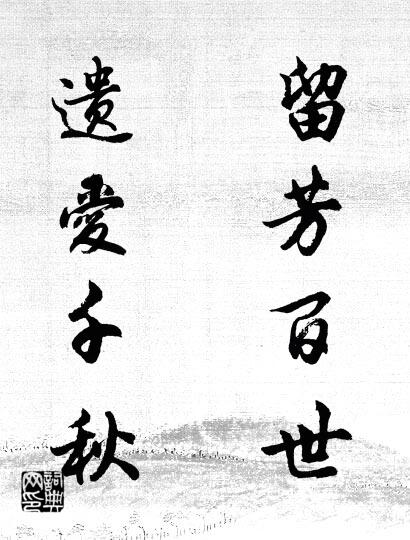 留芳百世
遺愛千秋
詞典网印